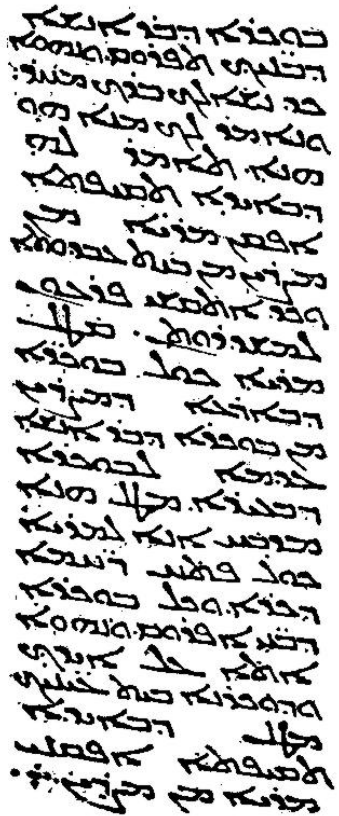 ܒܘܟܪܐ ܕܒܪ ܐܢܫܐ
ܕܒܢܝܟ ܬܦܪܘܩ. ܘܢܗܘܐ
ܟܕ ܢܫܐܠܟ ܒܪܟ ܡܚܪ.
ܘܢܐܡܪ ܠܟ ܡܢܐ ܗܘ
ܗܢܐ. ܬܐܡܪ ܠܗ
ܕܒܐܝܕܐ ܬܩܝܦܬܐ
ܐܦܩܢ ܡܪܝܐ ܡܢ
ܡܨܪܝܢ ܡܢ ܒܝܬ ܥܒܕܘܬܐ
ܘܟܕ ܐܬܩܫܝ ܦܪܥܘܢ
ܠܡܫܕܪܘܬܢ. ܩܛܠ
ܡܪܝܐ ܟܠ ܒܘܟܪܐ
ܕܒܐܪܥܐ ܕܡܨܪܝܢ
ܡܢ ܒܘܟܪܐ ܕܒܪ ܐܢܫܐ
ܥܕܡܐ ܠܒܘܟܪܐ
ܕܒܥܝܪܐ. ܡܛܠ ܗܢܐ
ܡܕܒܚ ܐܢܐ ܠܡܪܝܐ
ܟܠ ܦܬܚ ܪܚܡܐ
ܕܟܪܐ. ܘܟܠ ܒܘܟܪܐ
ܕܒܢܝ ܐܦܪܘܩ. ܘܢܗܘܐ
ܐܬܐ ܥܠ ܐܝܕܟ
ܘܕܘܟܪܢܐ ܒܝܬ ܥܝܢܝܟ
ܡܛܠ ܕܒܐܝܕܐ
ܬܩܝܦܬܐ ܐܦܩܟ
ܡܪܝܐ ܡܢ ܡܨܪܝܢ